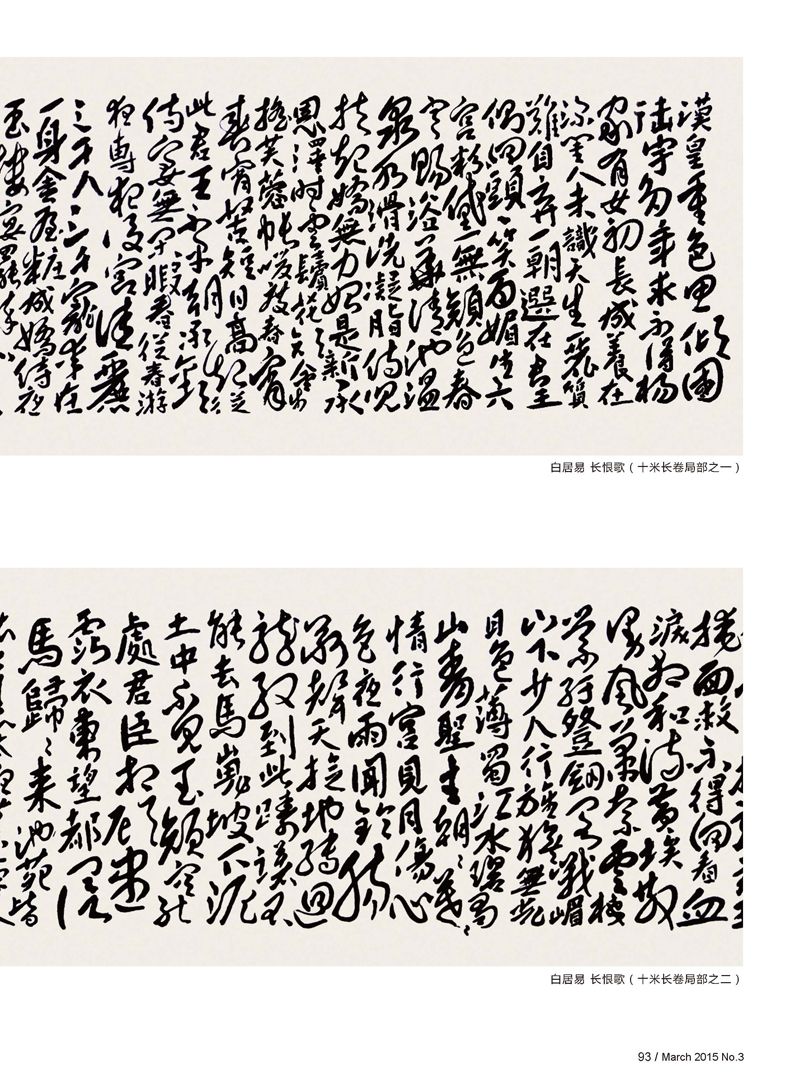 漢皇重色思傾國
御宇多年求不得楊
家有女初長成養在
深閨人未識天生麗質
難自棄一朝選在君王
側回頭一笑百媚生六
宮粉黛無顏色春
寒賜浴華清池溫
泉水滑洗凝脂侍兒
扶起嬌無力始是新承
恩澤時雲鬢花顏金步
搖芙蓉帳暖度春宵
春宵苦短日高起從
此君王不早朝承歡
侍宴無閑暇春從春游
夜專夜後宮佳麗
三千人三千寵愛在
一身金屋粧成嬌侍夜
玉樓宴罷醉
白居易 长恨歌（十米长卷局部之一）
掩面救不得回看血
淚相和流黃埃散
漫風蕭索雲棧
縈紆登劍閣峨嵋
山下少人行旌旗無光
日色薄蜀江水碧蜀
山青聖主朝〻暮〻
情行宮見月傷心
色夜雨聞鈴腸
斷聲天旋地轉迴
龍馭到此躊躇不
能去馬嵬坡下泥
土中不見玉顏空死
處君臣相顧盡
霑衣東望都門信
馬歸〻來池苑皆
白居易 长恨歌（十米长卷局部之二）
93 / March 2015 No.3